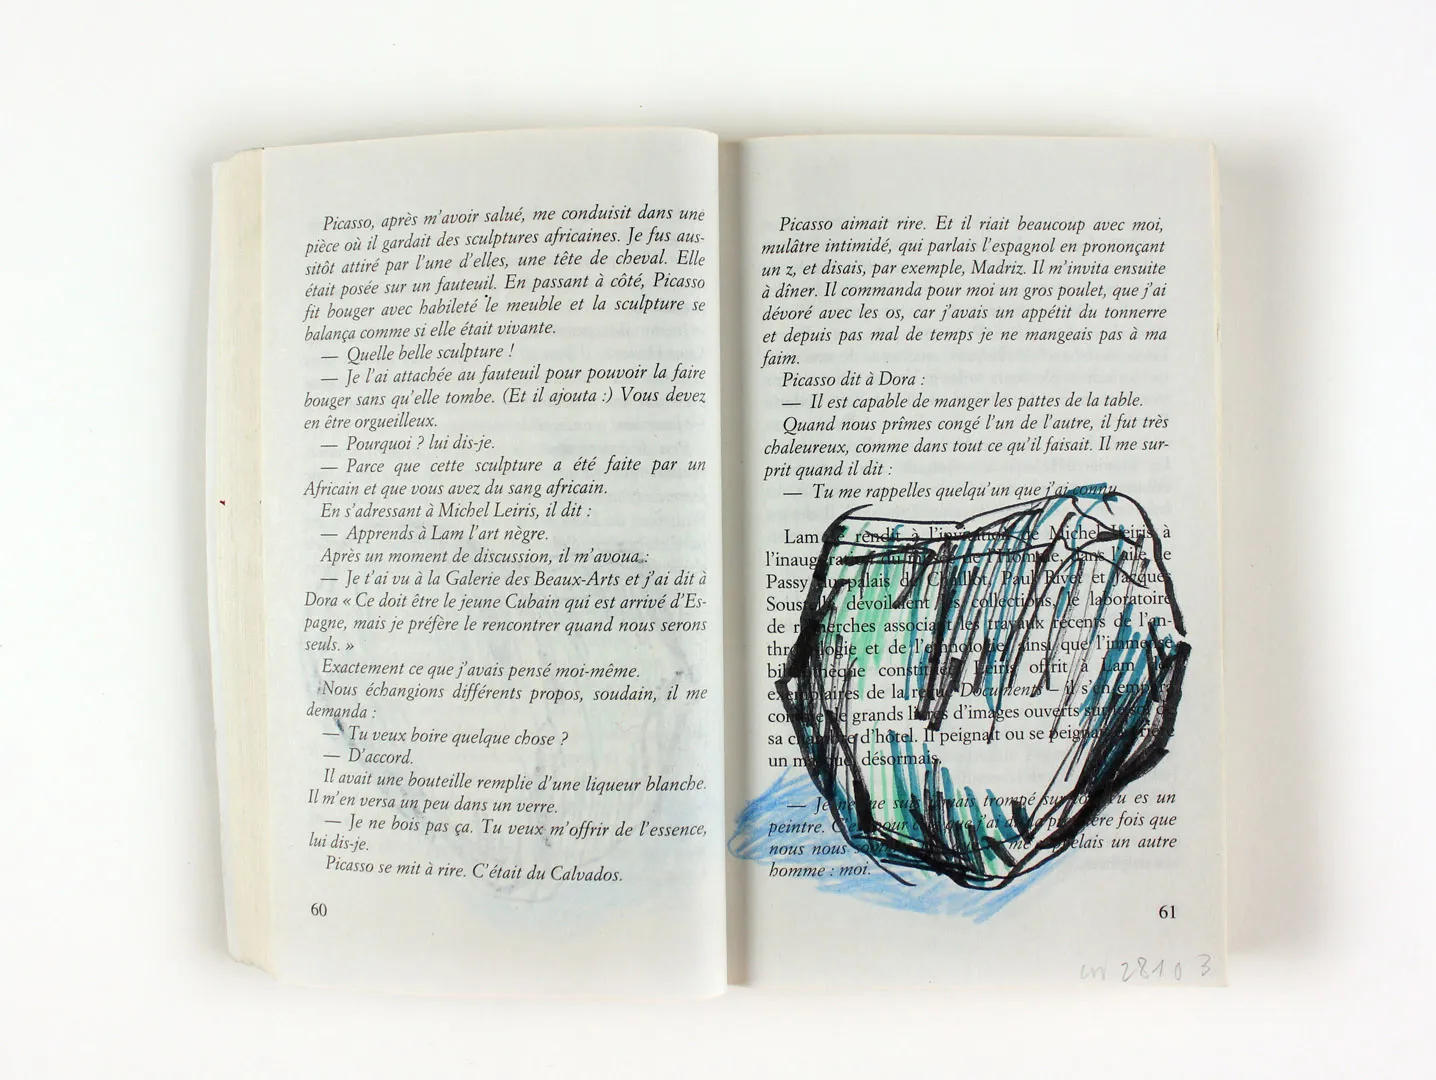 Picasso, après m'avoir salué, me conduisit dans une
pièce où il gardait des sculptures africaines. Je fus aus-
sitôt attiré par l'une d'elles, une tête de cheval. Elle
était posée sur un fauteuil. En passant à côté, Picasso
fit bouger avec habileté le meuble et la sculpture se
balança comme si elle était vivante.
— Quelle belle sculpture !
— Je l'ai attachée au fauteuil pour pouvoir la faire
bouger sans qu'elle tombe. (Et il ajouta :) Vous devez
en être orgueilleux.
— Pourquoi ? lui dis-je.
— Parce que cette sculpture a été faite par un
Africain et que vous avez du sang africain.
En s'adressant à Michel Leiris, il dit :
— Apprends à Lam l'art nègre.
Après un moment de discussion, il m'avoua :
— Je t'ai vu à la Galerie des Beaux-Arts et j'ai dit à
Dora « Ce doit être le jeune Cubain qui est arrivé d'Es-
pagne, mais je préfère le rencontrer quand nous serons
seuls. »
Exactement ce que j'avais pensé moi-même.
Nous échangions différents propos, soudain, il me
demanda :
— Tu veux boire quelque chose ?
— D'accord.
Il avait une bouteille remplie d'une liqueur blanche.
Il m'en versa un peu dans un verre.
— Je ne bois pas ça. Tu veux m'offrir de l'essence,
lui dis-je.
Picasso se mit à rire. C'était du Calvados.
60
Picasso aimait rire. Et il riait beaucoup avec moi,
mulâtre intimidé, qui parlais l'espagnol en prononçant
un z, et disais, par exemple, Madriz. Il m'invita ensuite
à dîner. Il commanda pour moi un gros poulet, que j'ai
dévoré avec les os, car j'avais un appétit du tonnerre
et depuis pas mal de temps je ne mangeais pas à ma
faim.
Picasso dit à Dora :
— Il est capable de manger les pattes de la table.
Quand nous prîmes congé l'un de l'autre, il fut très
chaleureux, comme dans tout ce qu'il faisait. Il me sur-
prit quand il dit :
— Tu me rappelles quelqu'un que j'ai connu
Lam se rendit à l'invitation de Michel Leiris à
l'inauguration du musée de l'Homme, dans l'aile de
Passy du palais de Chaillot. Paul Rivet et Jacques
Soustelle dévoilaient les collections, le laboratoire
de recherches associant les travaux récents de l'an-
thropologie et de l'ethnologie ainsi que l'immense
bibliothèque constituée. Leiris offrit à Lam des
exemplaires de la revue Documents – il s'en empara
comme de grands livres d'images ouverts sur le sol de
sa chambre d'hôtel. Il peignait ou se peignait derrière
un masque, désormais.
— Je ne me suis jamais trompé sur toi. Tu es un
peintre. C'est pour cela que j'ai dit la première fois que
nous nous sommes me rappelais un autre
homme : moi.
61
28103